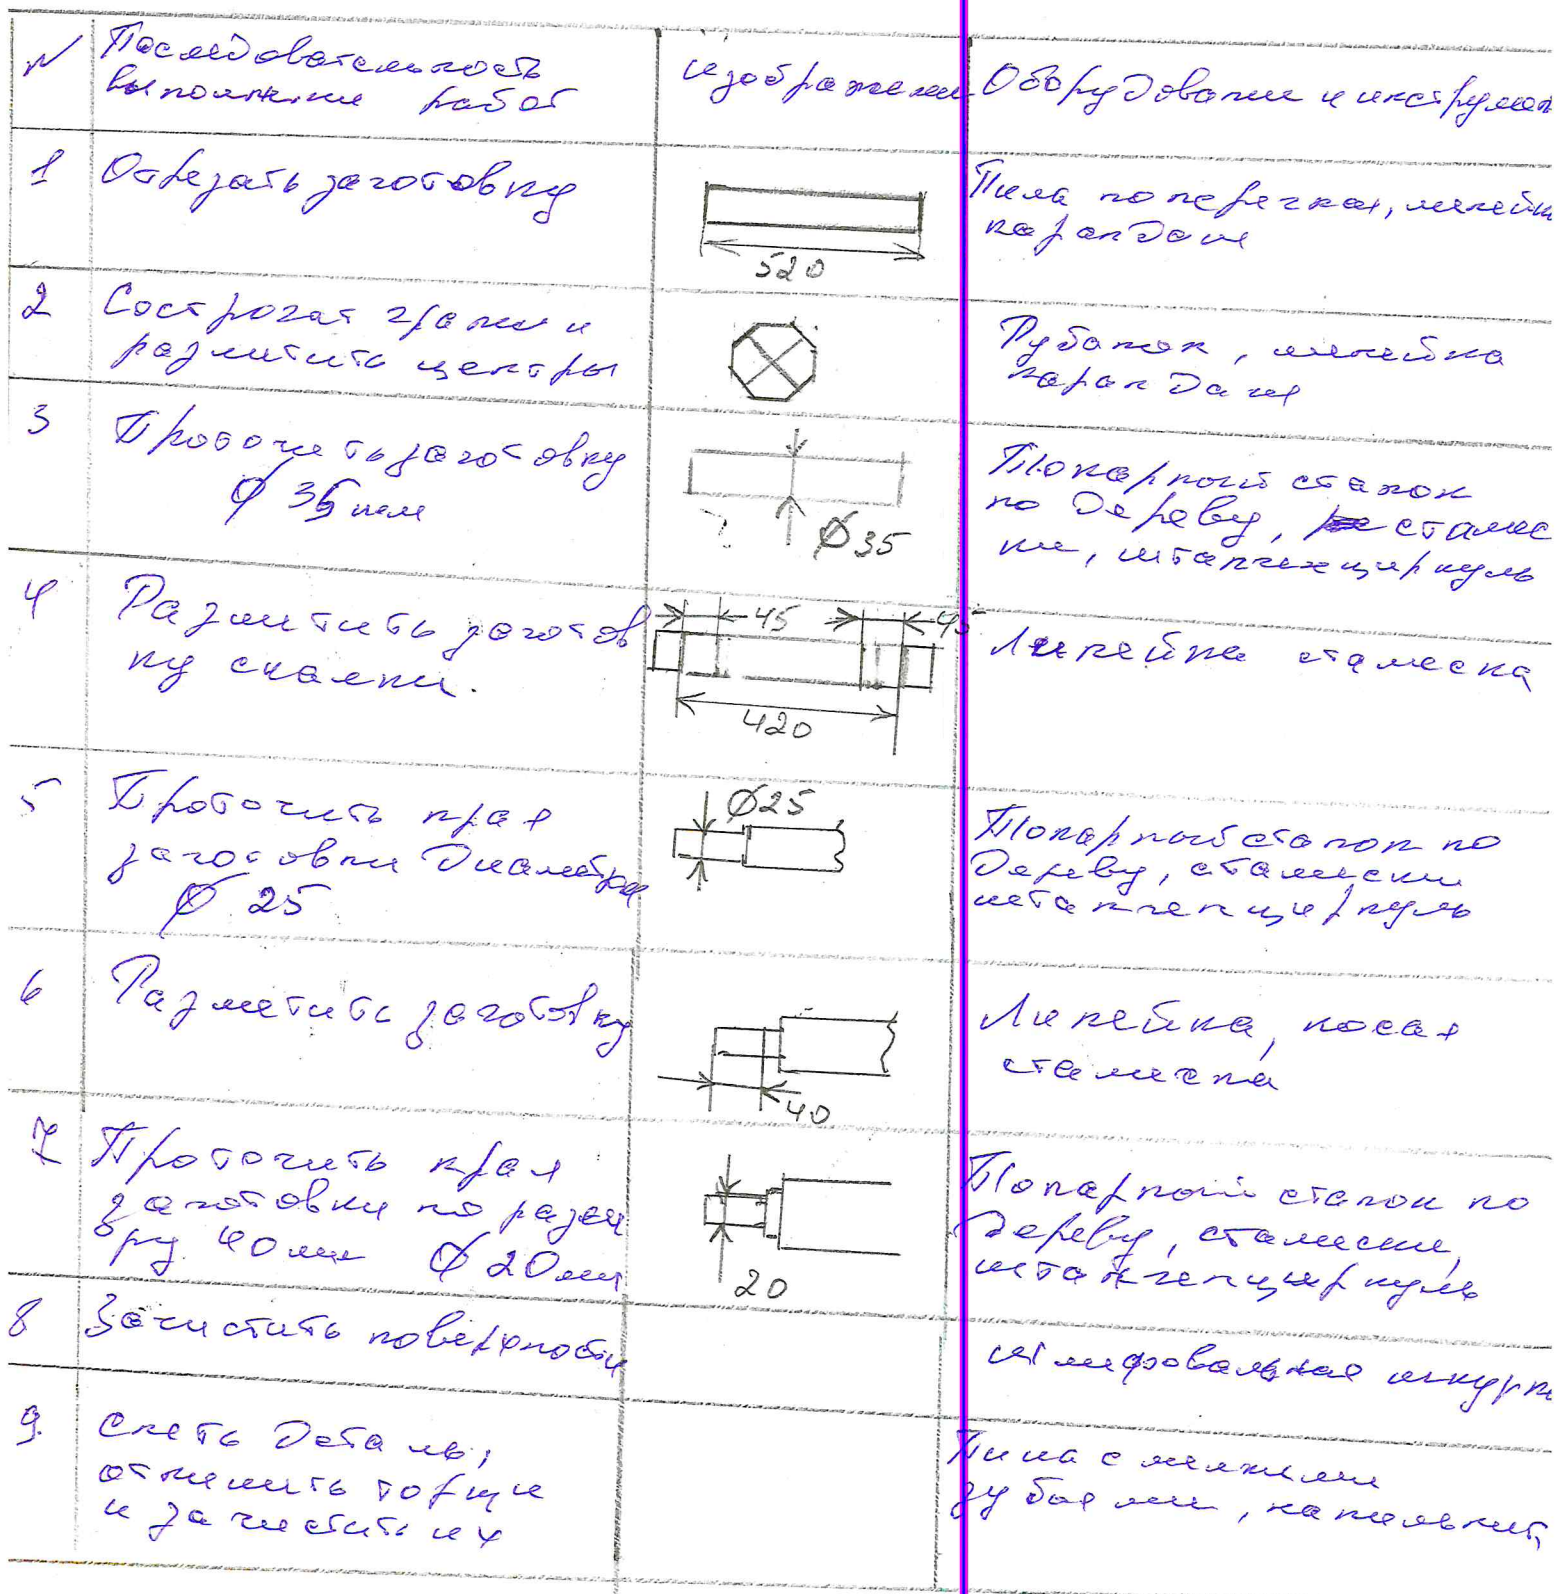 N Последовательность
выполнения работ
изображение
Оборудование и инструмен
1 Отрезать заготовку
520
Пила поперечная, линейк
карандаш
2 Сострогат грани и
разметить центры
Рубанок, линейка
карандаш
3 Проточить заготовку
Ø 35 мм
Ø35
Токарный станок
по дереву, стамес
ки, штангенциркуль
4 Разметить заготов
ку скалки.
45 45
420
Линейка стамеска
5 Проточить края
заготовки диаметра
Ø 25
Ø25
Токарный станок по
дереву, стамески
штангенциркуль
6 Разметить заготовку
40
Линейка, косая
стамеска
7 Проточить края
заготовки по разм
еру 40мм Ø 20мм
20
Токарный станок по
дереву, стамески,
штангенциркуль
8 Зачистить поверхности
шлифовальная шкурк
9. Снять деталь,
отпилить торцы
и зачистить их
Пила с мелкими
зубьями, напильник,